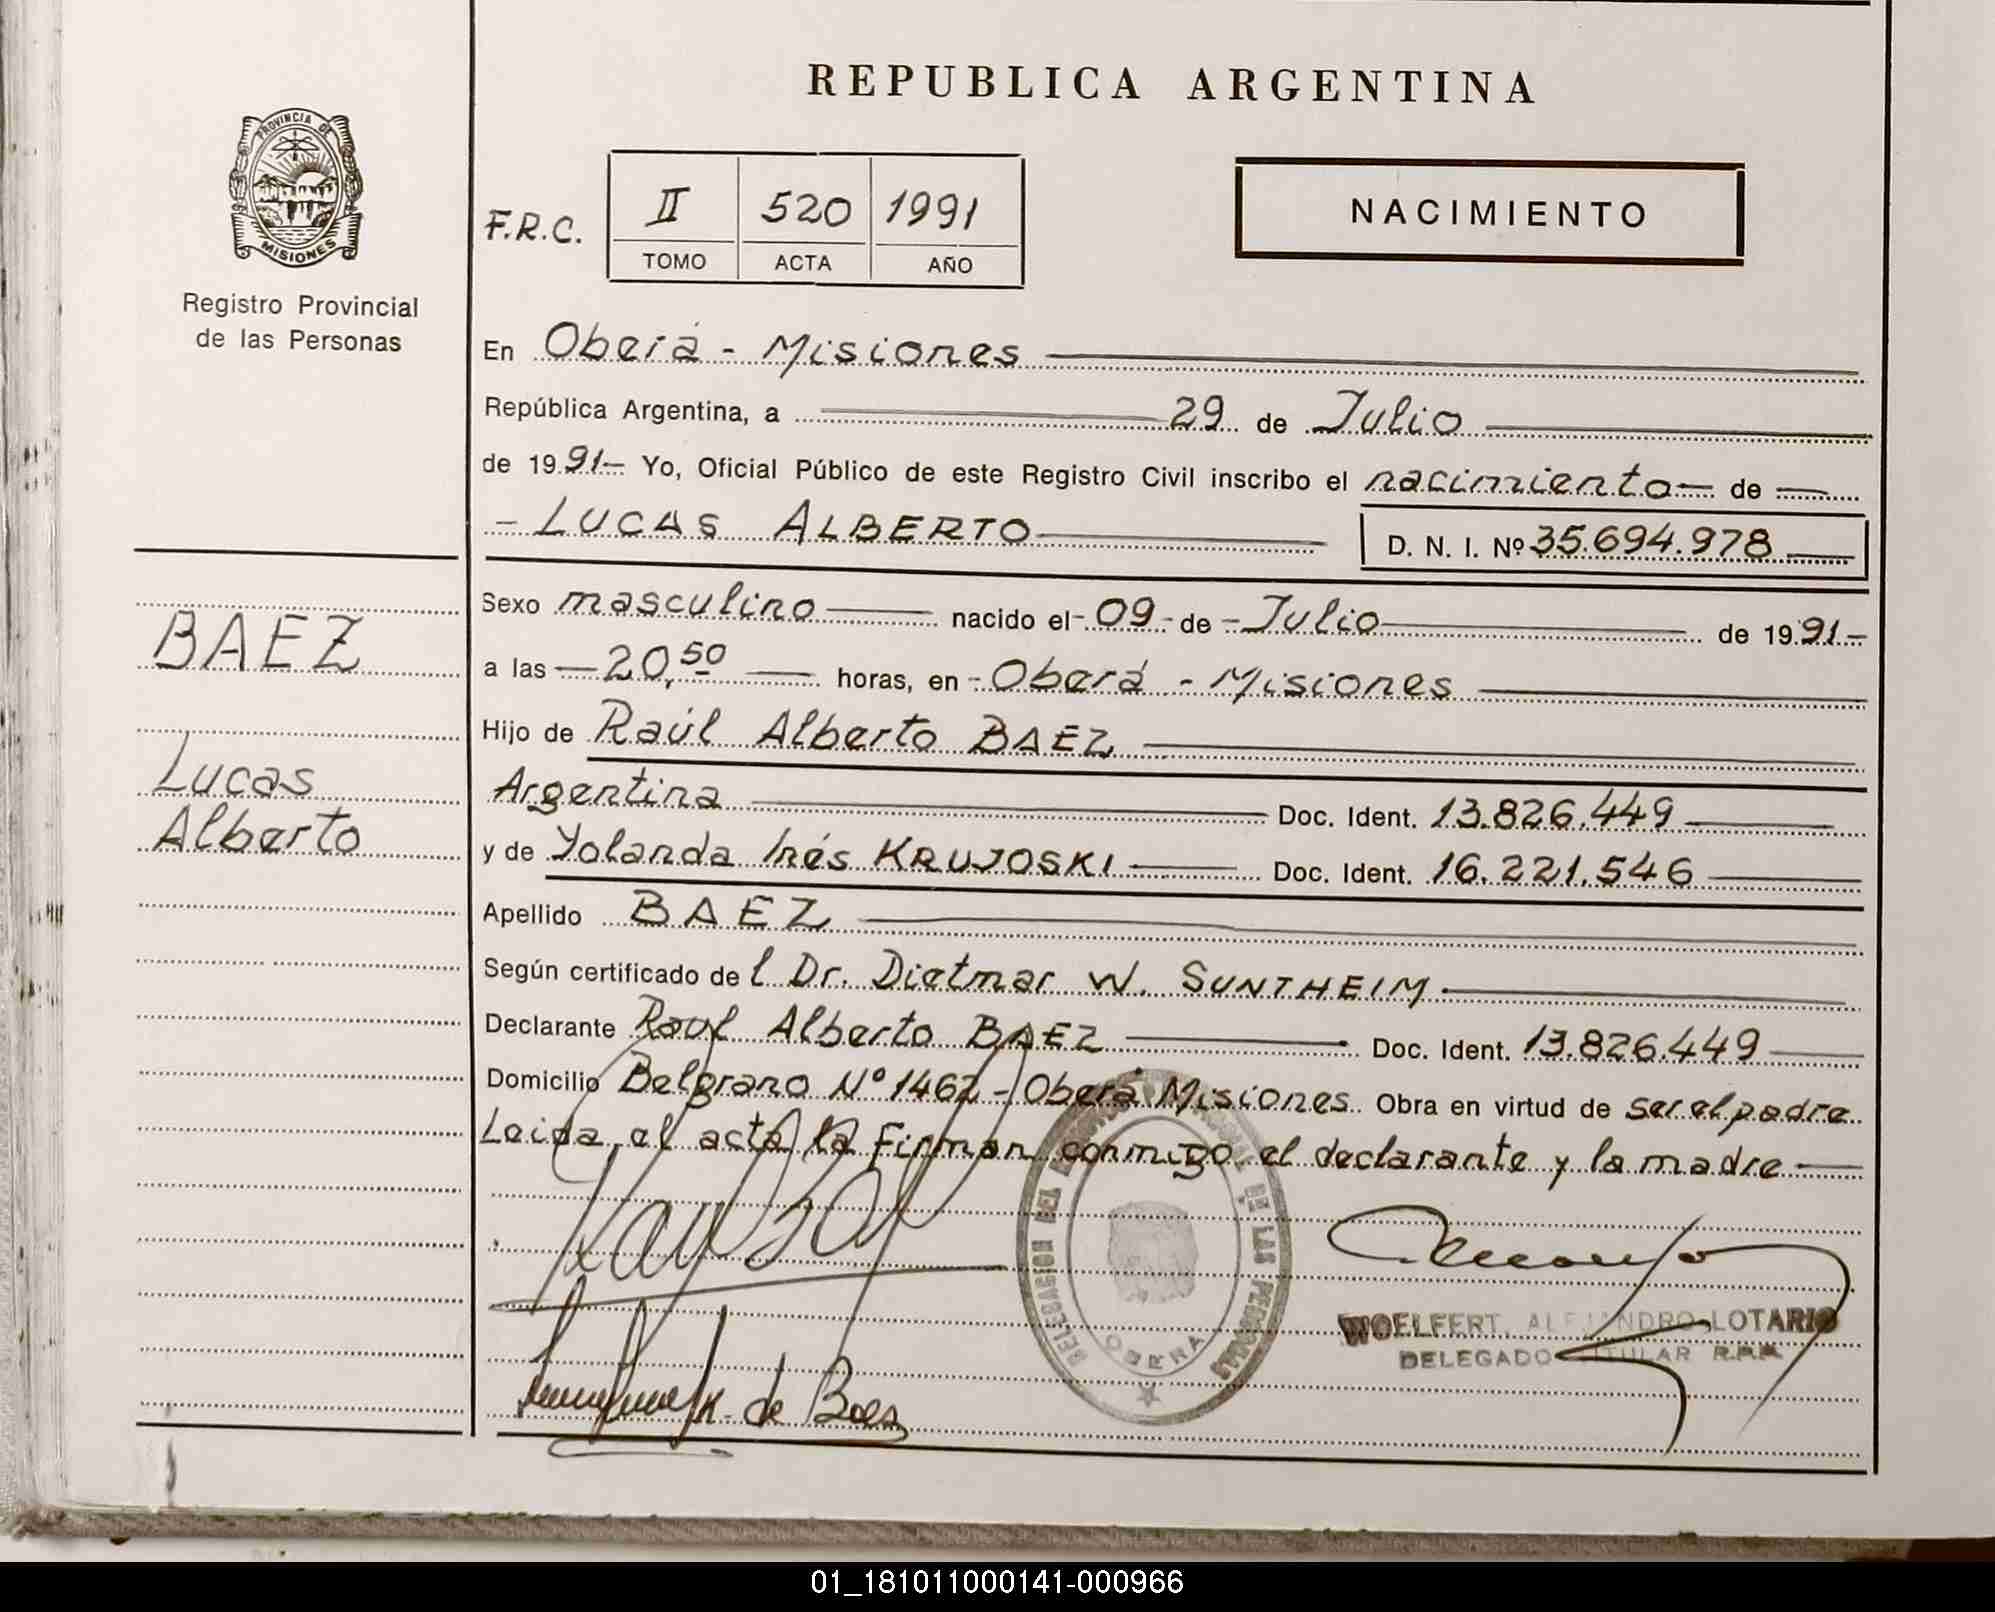 REPUBLICA ARGENTINA
PROVINCIA DE
MISIONES
Registro Provincial
de las Personas
F.R.C. II 520 1991
TOMO ACTA AÑO
NACIMIENTO
En Oberá - Misiones
República Argentina, a 29 de Julio
de 1991- Yo, Oficial Público de este Registro Civil inscribo el nacimiento de
- LUCAS ALBERTO D. N. I. Nº 35.694.978
BAEZ
Lucas
Alberto
Sexo masculino nacido el 09 de Julio de 1991-
a las 20,50 horas, en Oberá - Misiones
Hijo de Raúl Alberto BAEZ
Argentina Doc. Ident. 13.826.449
y de Yolanda Inés KRUJOSKI Doc. Ident. 16.221.546
Apellido BAEZ
Según certificado del Dr. Dietmar W. SUNTHEIM
Declarante Raul Alberto BAEZ Doc. Ident. 13.826.449
Domicilio Belgrano Nº 1462 - Oberá Misiones. Obra en virtud de ser el padre
Leida el acta la Firman conmigo el declarante y la madre
DELEGACION DEL DE LAS PERSONAS
OBERA
WOELFERT, ALEJANDRO LOTARIO
DELEGADO TITULAR R.P.P.
K. de Baez
01_181011000141-000966